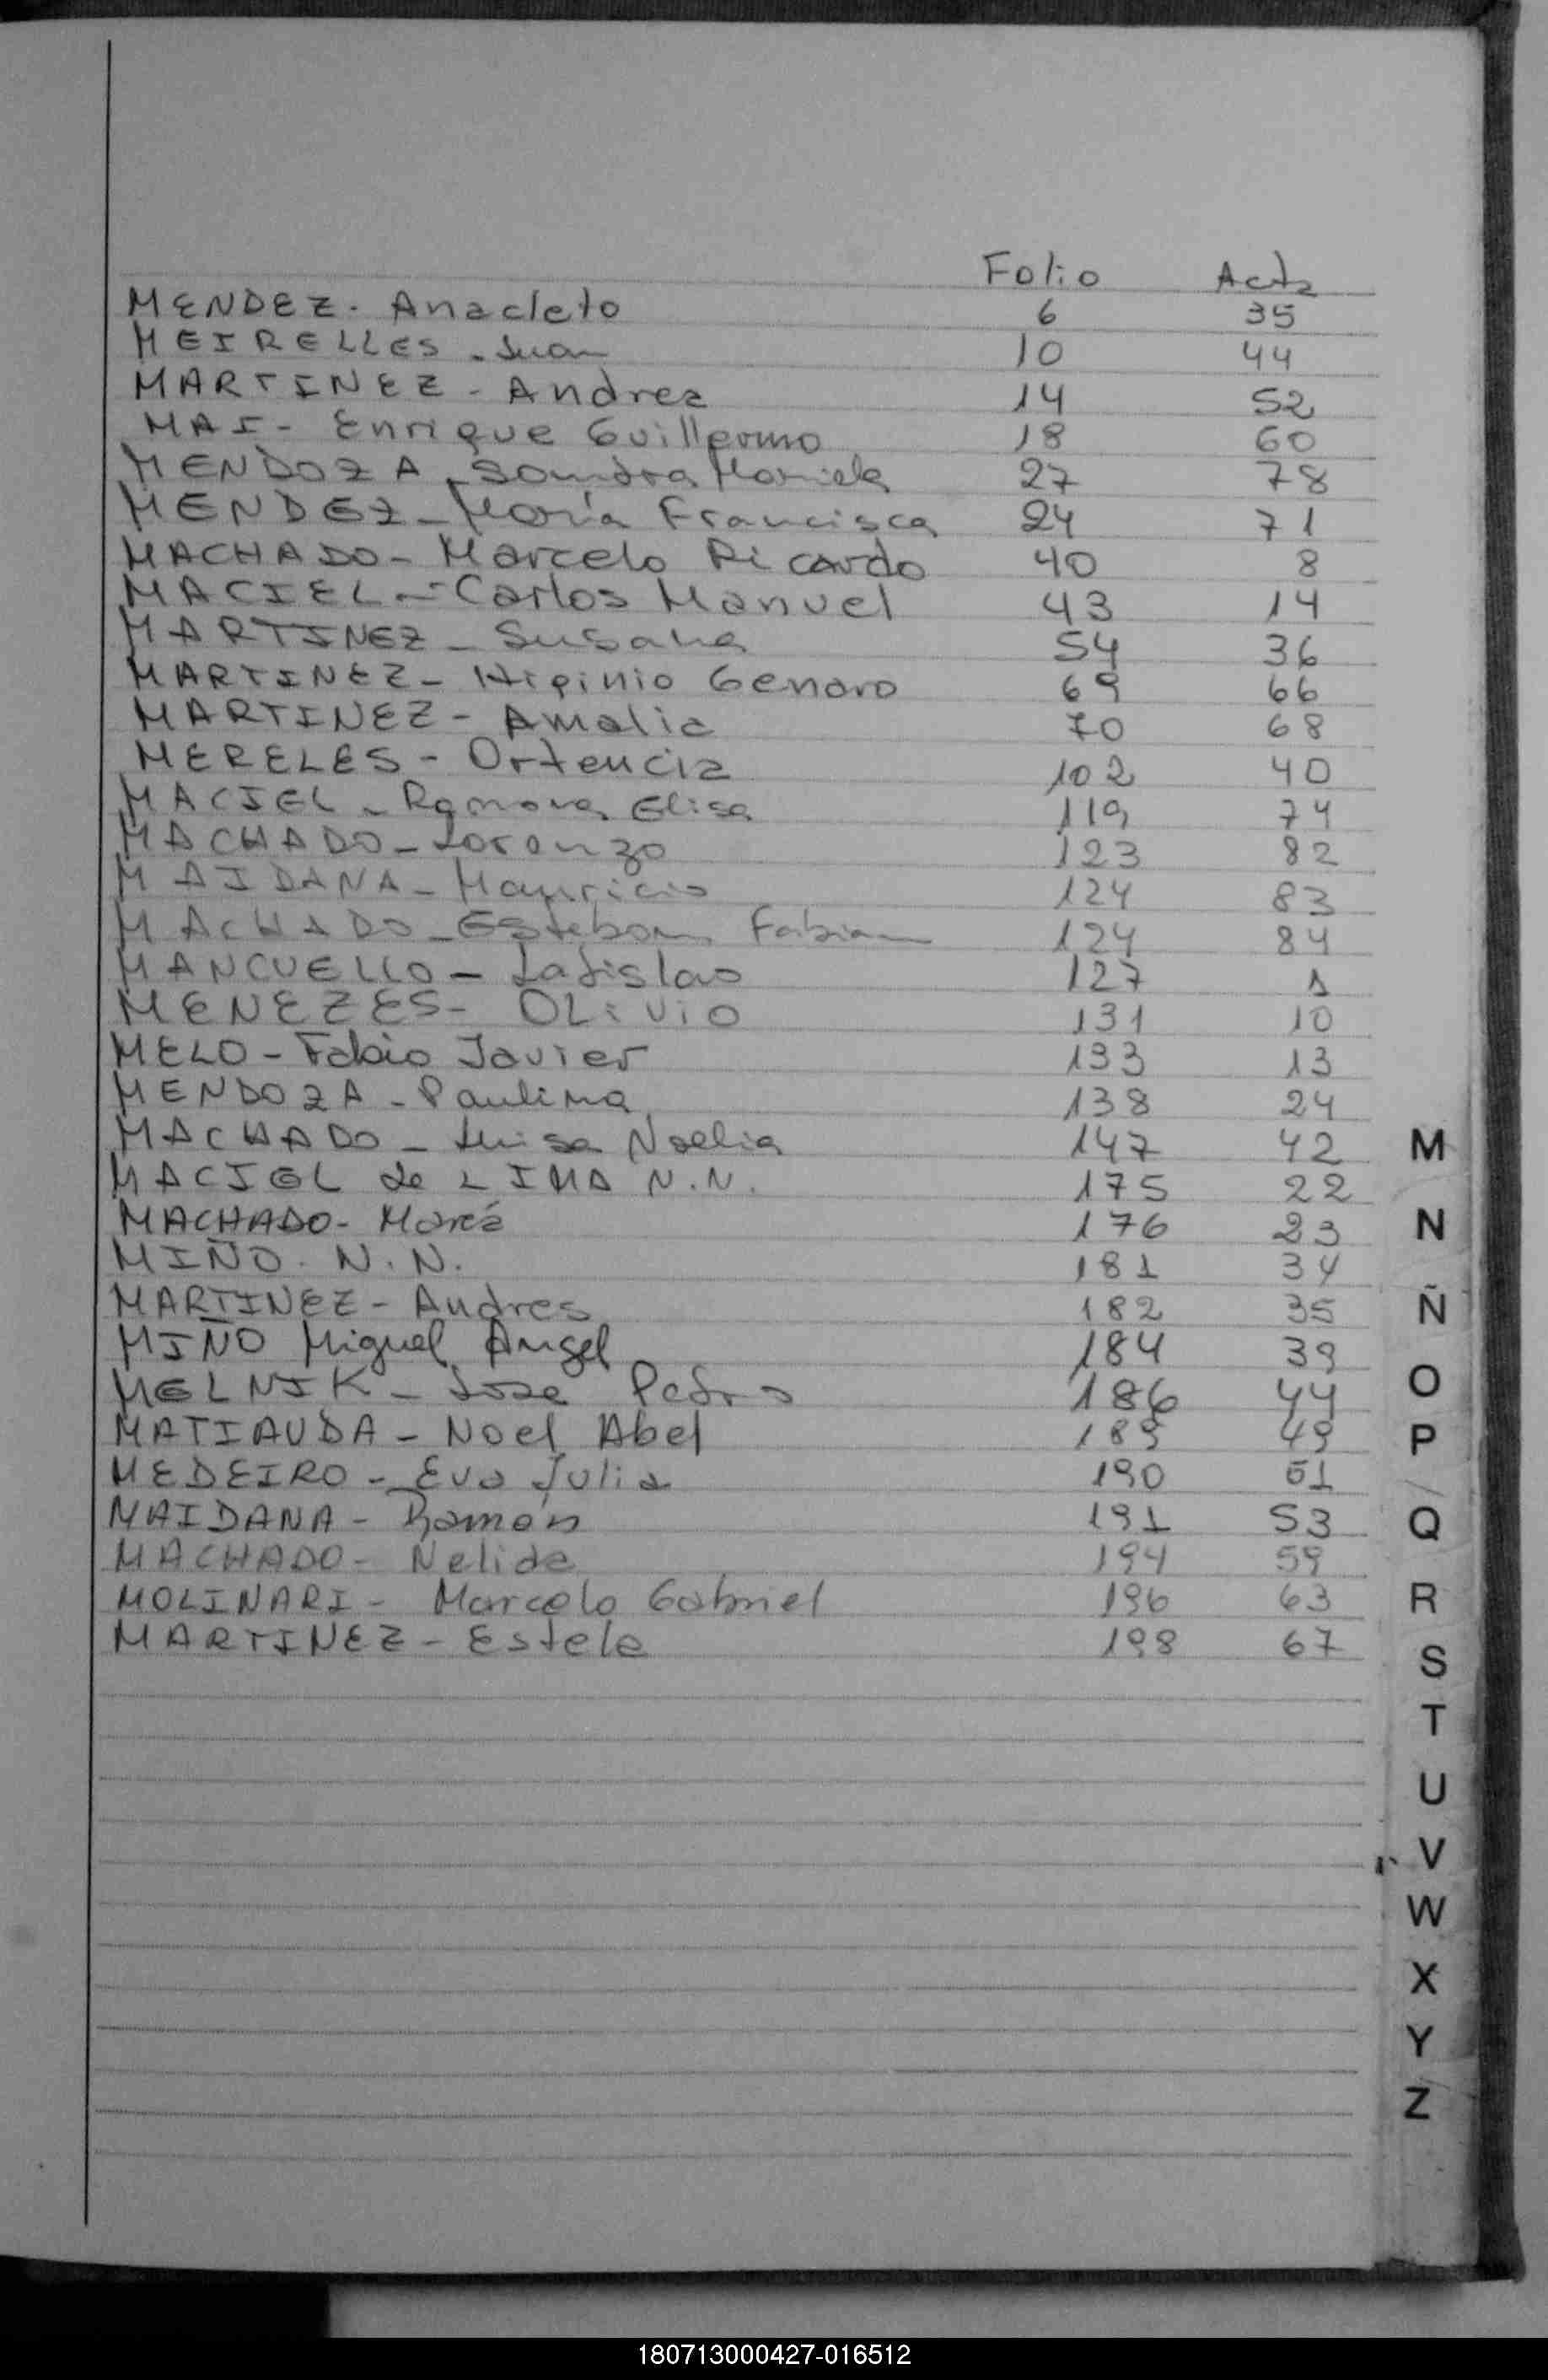 Folio Acta
MENDEZ - Anacleto 6 35
MEIRELLES - Juan 10 44
MARTINEZ - Andrea 14 52
MAI - Enrique Guillermo 18 60
MENDOZA - Sandra Mariela 27 78
MENDEZ - María Francisca 24 71
MACHADO - Marcelo Ricardo 40 8
MACIEL - Carlos Manuel 43 14
MARTINEZ - Susana 54 36
MARTINEZ - Higinio Genaro 69 66
MARTINEZ - Amalia 70 68
MERELES - Ortencia 102 40
MACIEL - Ramona Elisa 119 74
MACHADO - Lorenzo 123 82
MAIDANA - Mauricio 124 83
MACHADO - Esteban Fabian 124 84
MANCUELLO - Ladislao 127 1
MENEZES - OLivio 131 10
MELO - Fabio Javier 133 13
MENDOZA - Paulina 138 24
MACHADO - Luisa Noelia 147 42
MACIEL de LIMA N.N. 175 22
MACHADO - María 176 23
MIÑO - N.N. 181 34
MARTINEZ - Andres 182 35
MIÑO Miguel Angel 184 39
MELNIK - Jose Pedro 186 44
MATIAUDA - Noel Abel 189 49
MEDEIRO - Eva Julia 190 51
MAIDANA - Ramón 191 53
MACHADO - Nelida 194 59
MOLINARI - Marcelo Gabriel 196 63
MARTINEZ - Estela 198 67
M
N
Ñ
O
P
Q
R
S
T
U
V
W
X
Y
Z
180713000427-016512